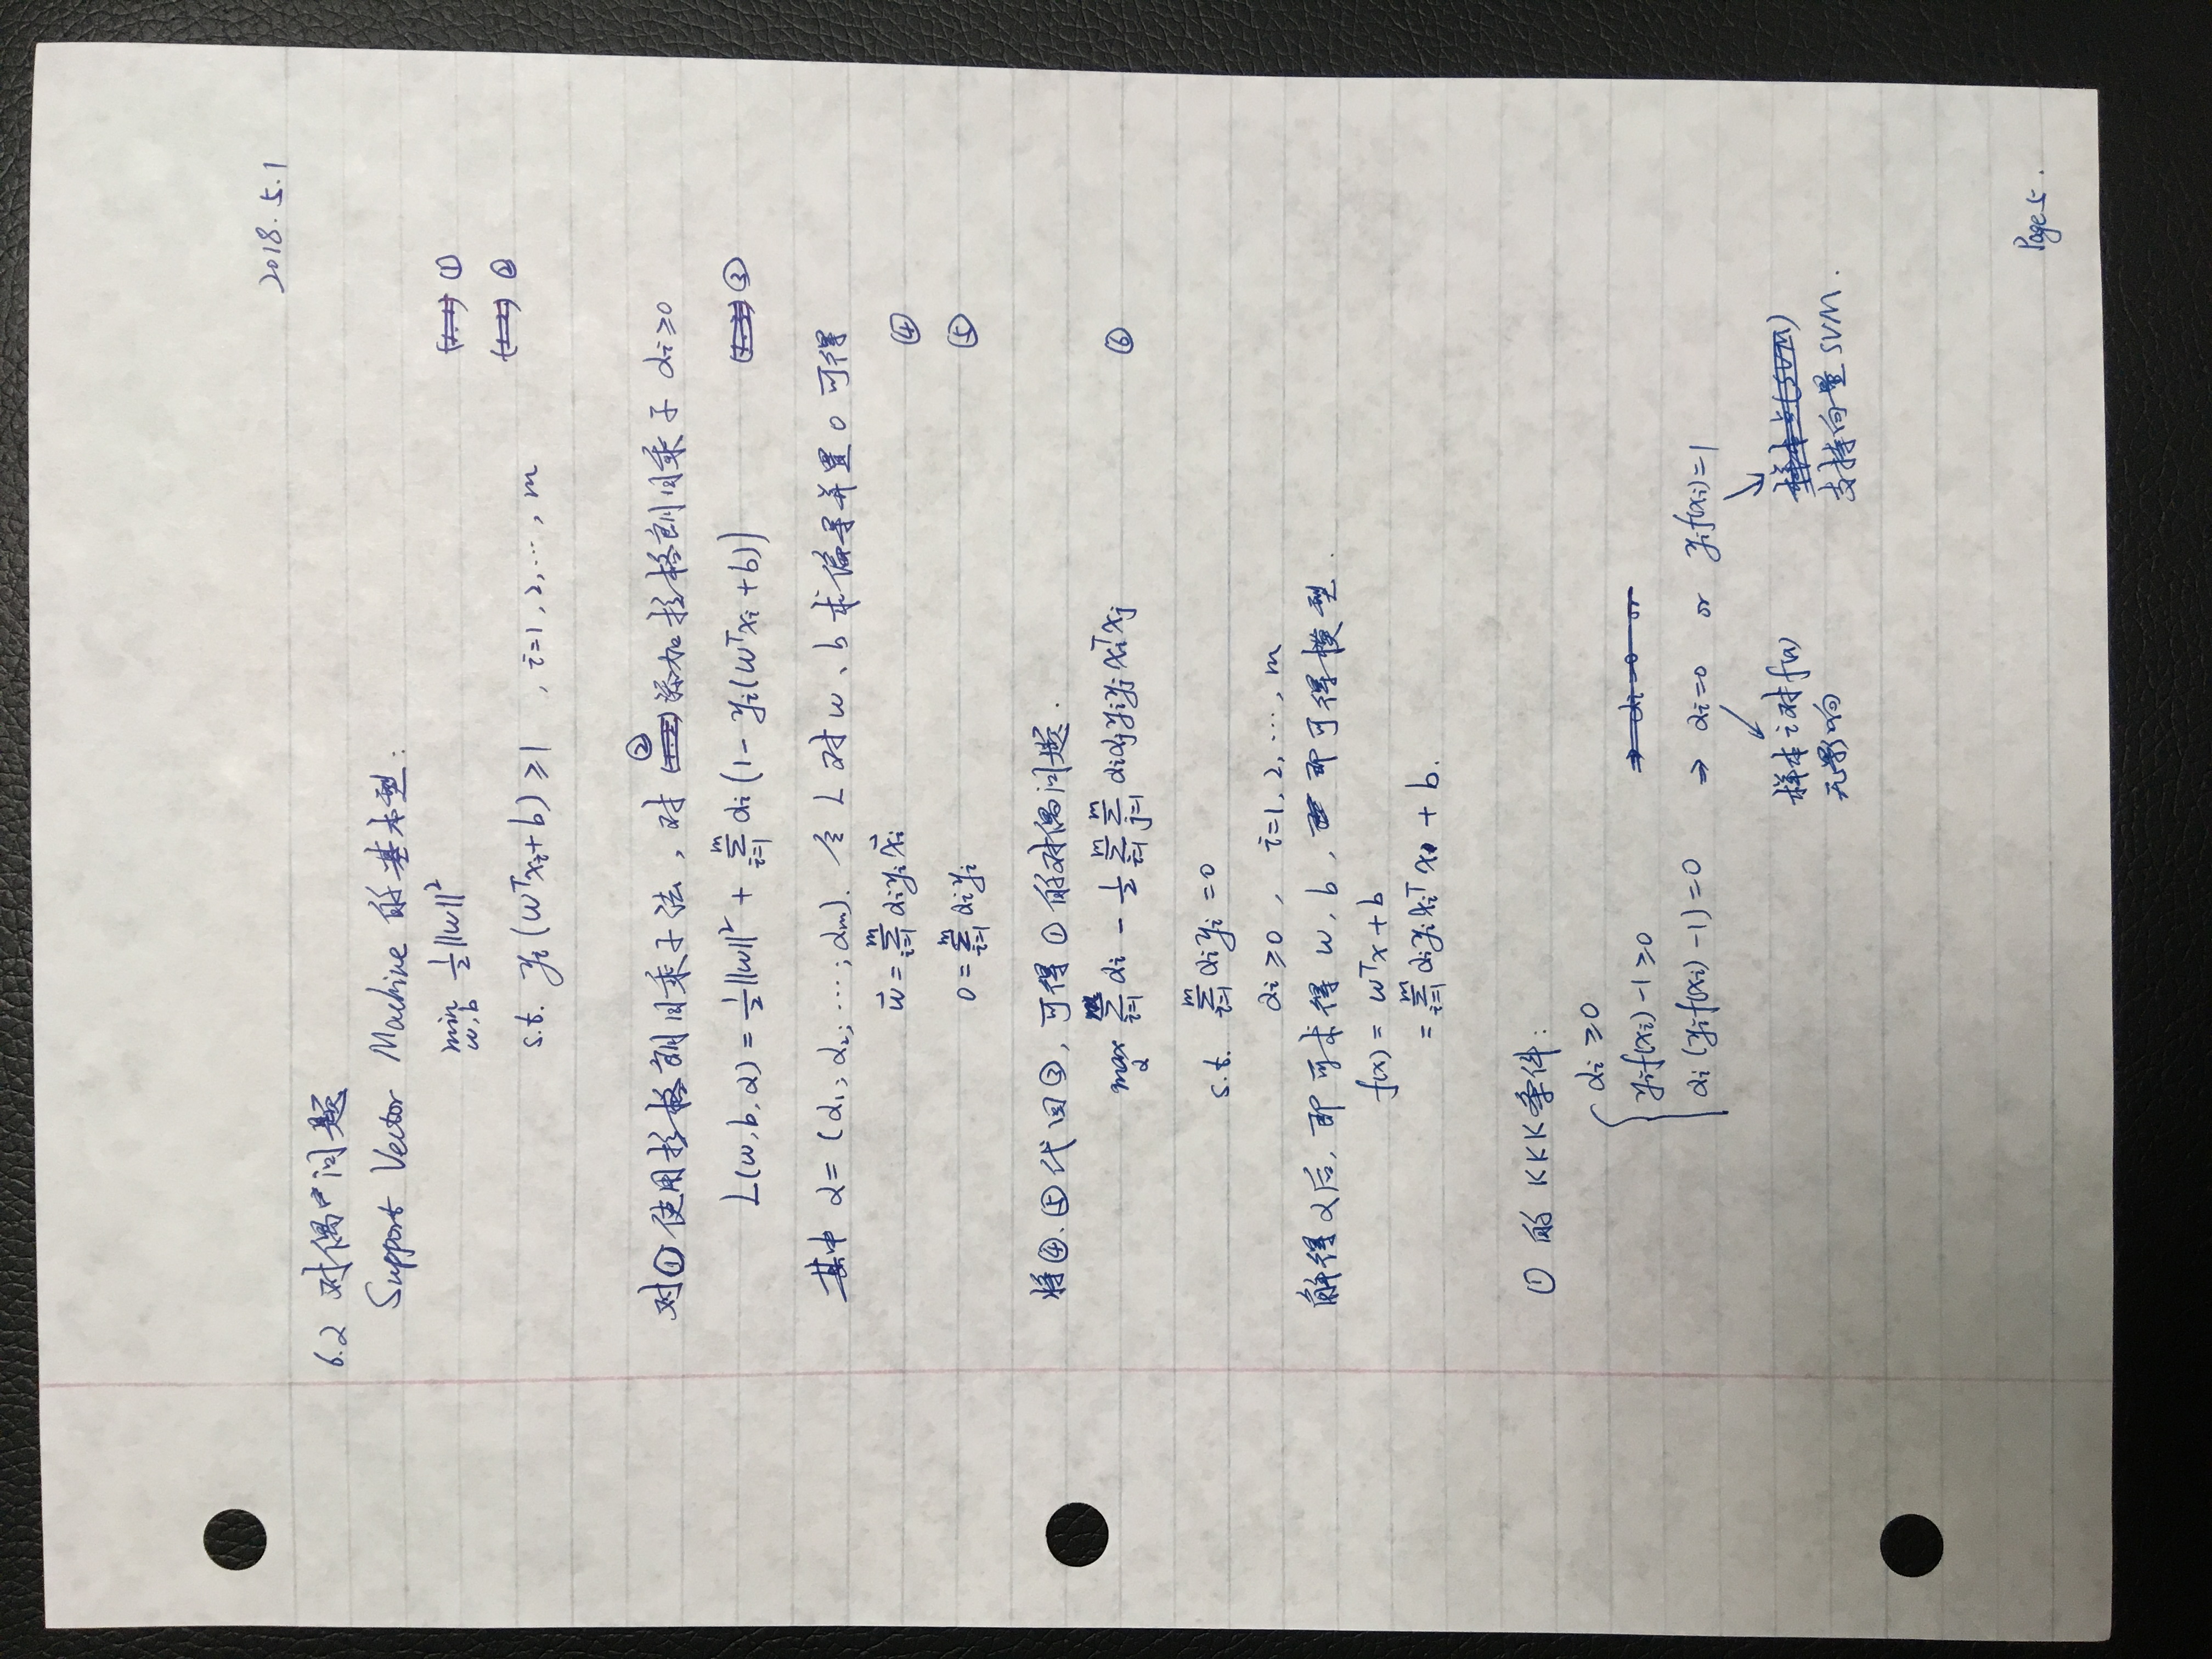 2018.5.1
6.2 对偶问题
Support Vector Machine 的基本型:
min_{w,b} ½||w||² ①
②
s.t. yᵢ(wᵀxᵢ+b) ≥ 1 , i=1, 2, …, m
对①使用拉格朗日乘子法, 对②添加拉格朗日乘子 αᵢ≥0
L(w,b,α) = ½||w||² + Σ_{i=1}^{m} αᵢ(1-yᵢ(wᵀxᵢ+b)) ③
其中 α=(α₁; α₂; …; αₘ). 令 L 对 w、b 求偏导并置0可得
w⃗ = Σ_{i=1}^{m} αᵢyᵢx⃗ᵢ ④
0 = Σ_{i=1}^{m} αᵢyᵢ ⑤
将④.⑤代回③, 可得①的对偶问题.
max_α Σ_{i=1}^{m} αᵢ - ½ Σ_{i=1}^{m} Σ_{j=1}^{m} αᵢαⱼyᵢyⱼxᵢᵀxⱼ ⑥
s.t. Σ_{i=1}^{m} αᵢyᵢ = 0
αᵢ ≥ 0 , i=1, 2, …, m
解得α后, 即可求得 w, b, 即可得模型.
f(x) = wᵀx + b
= Σ_{i=1}^{m} αᵢyᵢxᵢᵀx + b.
① 的 KKK条件:
αᵢ ≥ 0
yᵢf(xᵢ) - 1 ≥ 0 ⇒ αᵢ=0 or
αᵢ(yᵢf(xᵢ) - 1) = 0 ⇒ αᵢ=0 or yᵢf(xᵢ)=1
样本i对f(x)
无影响
支持向量SVM.
Page 5.